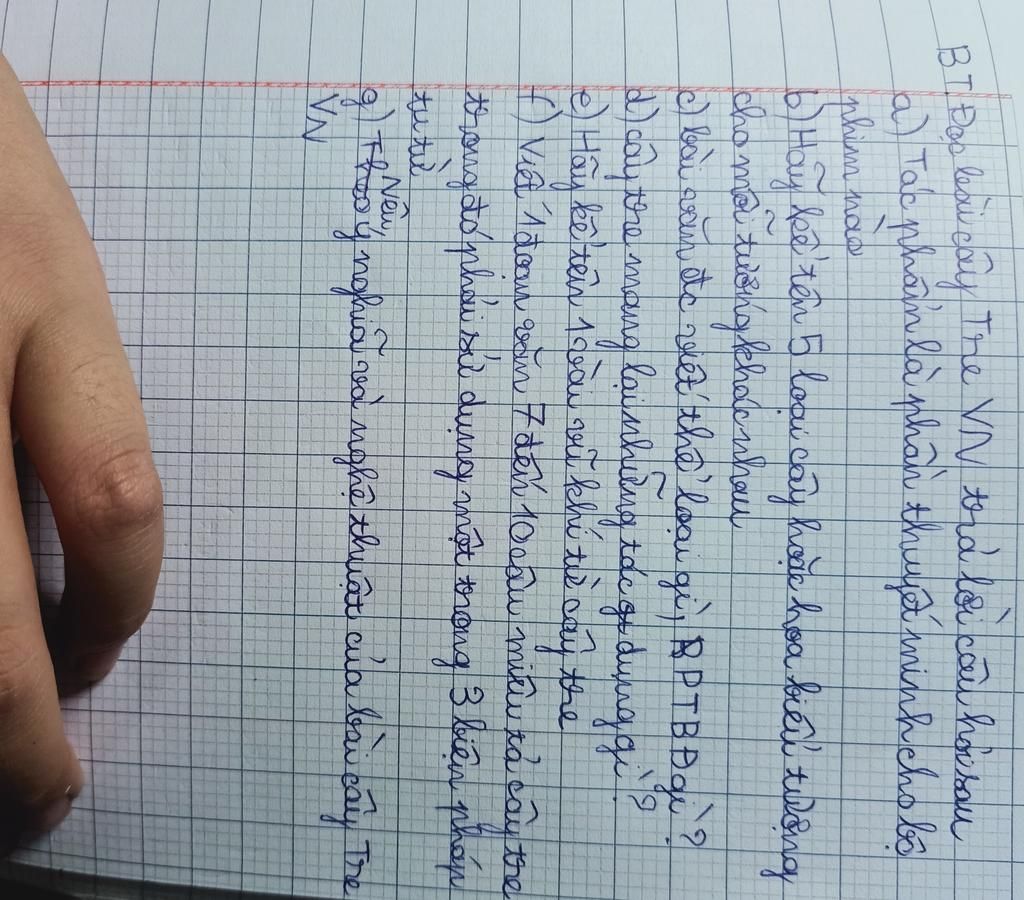 BT. Đọc bài cây Tre VN trả lời câu hỏi sau
a) Tác phẩm là phần thuyết minh cho bộ
phim nào
b) Hãy kể tên 5 loại cây hoặc hoa biểu tượng
cho mỗi tướng khác nhau
c) bài văn đc viết thể loại gì, PTBĐ gì?
d) cây tre mang lại những tác dụng gì?
e) Hãy kể tên 1 vài vũ khí từ cây tre
f) Viết 1 đoạn văn 7 đến 10 câu miêu tả cây tre
trong đó phải sử dụng một trong 3 biện pháp
tu từ
g) Nêu ý nghĩa và nghệ thuật của bài cây Tre
VN